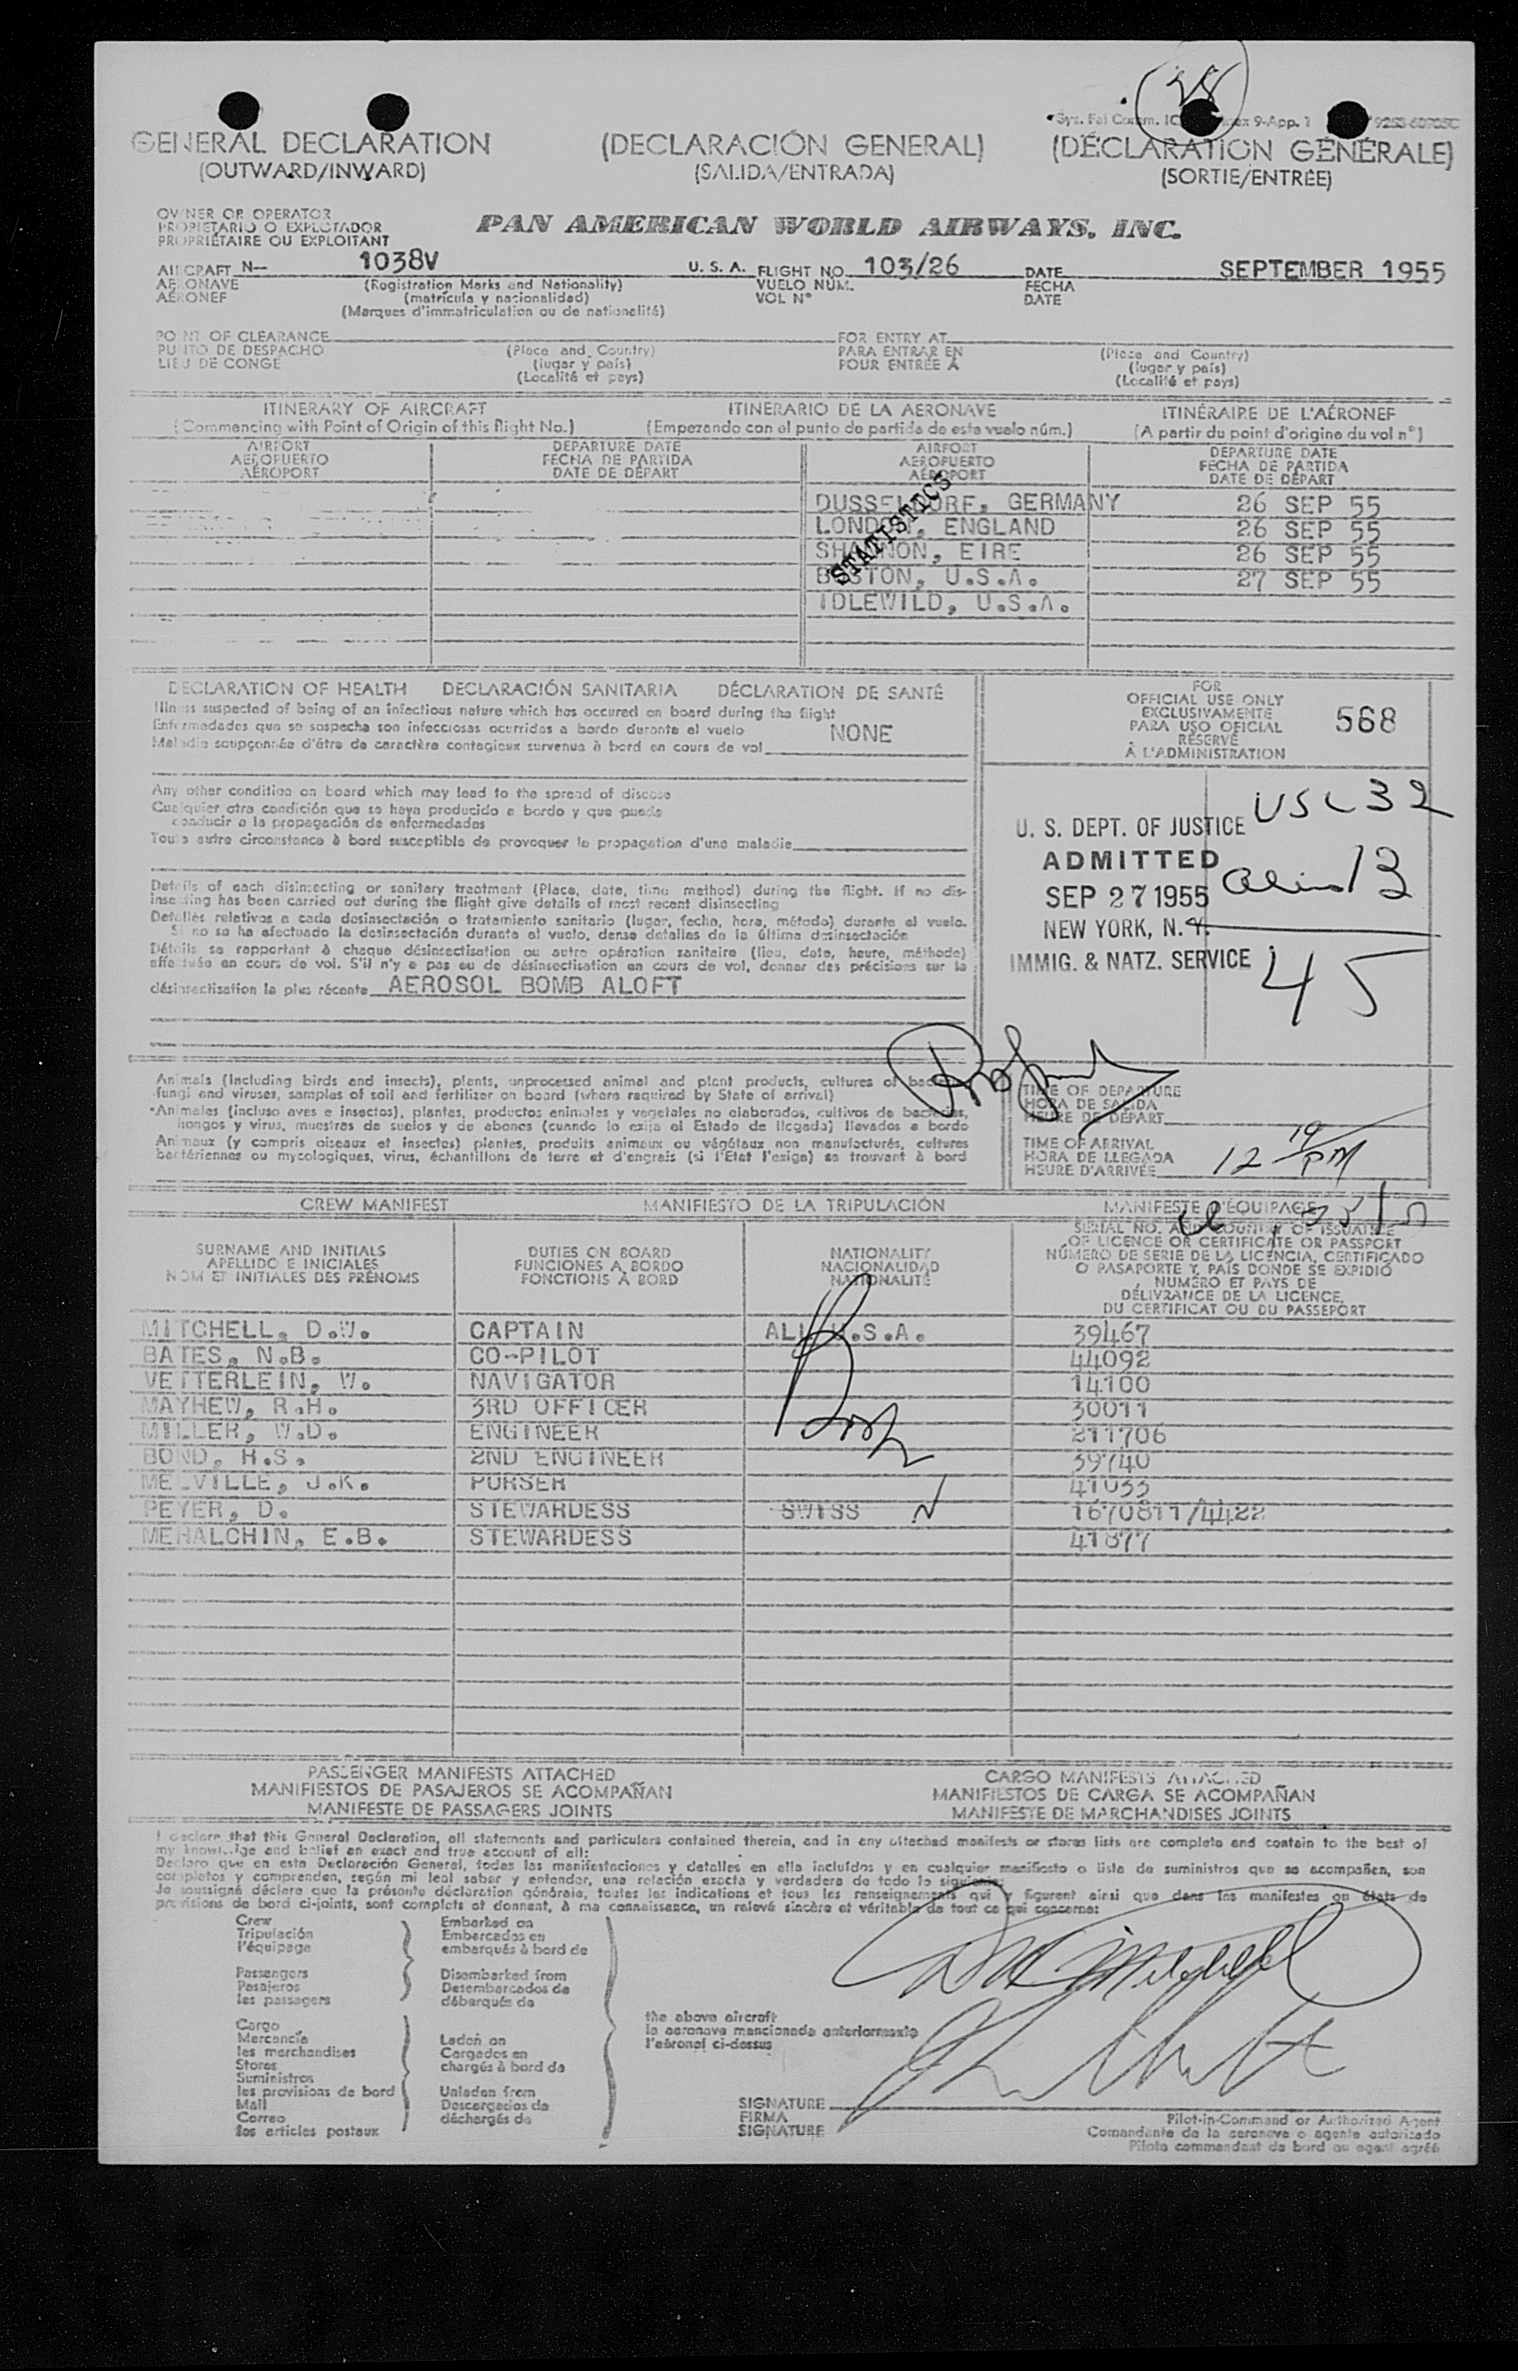 28
GENERAL DECLARATION
(OUTWARD/INWARD)
(DECLARACIÓN GENERAL)
(SALIDA/ENTRADA)
(DÉCLARATION GÉNÉRALE)
(SORTIE/ENTRÉE)
OWNER OR OPERATOR
PROPIETARIO O EXPLOTADOR
PROPRIÉTAIRE OU EXPLOITANT
PAN AMERICAN WORLD AIRWAYS, INC.
AIRCRAFT N— 1038V U. S. A. FLIGHT NO. 103/26 DATE SEPTEMBER 1955
AERONAVE (Registration Marks and Nationality) VUELO NÚM. FECHA
AÉRONEF (matrícula y nacionalidad) VOL N° DATE
(Marques d'immatriculation ou de nationalité)
POINT OF CLEARANCE FOR ENTRY AT
PUNTO DE DESPACHO (Place and Country) PARA ENTRAR EN (Place and Country)
LIEU DE CONGE (lugar y país) POUR ENTRÉE À (lugar y país)
(Localité et pays) (Localité et pays)
ITINERARY OF AIRCRAFT ITINERARIO DE LA AERONAVE ITINÉRAIRE DE L'AÉRONEF
(Commencing with Point of Origin of this flight No.) (Empezando con el punto de partida de este vuelo núm.) (A partir du point d'origine du vol n°)
AIRPORT DEPARTURE DATE AIRPORT DEPARTURE DATE
AEROPUERTO FECHA DE PARTIDA AEROPUERTO FECHA DE PARTIDA
AÉROPORT DATE DE DÉPART AÉROPORT DATE DE DÉPART
STATISTICS
DUSSELDORF, GERMANY 26 SEP 55
LONDON, ENGLAND 26 SEP 55
SHANNON, EIRE 26 SEP 55
BOSTON, U.S.A. 27 SEP 55
IDLEWILD, U.S.A.
DECLARATION OF HEALTH DECLARACIÓN SANITARIA DÉCLARATION DE SANTÉ
Illness suspected of being of an infectious nature which has occured on board during the flight
Enfermedades que se sospecha son infecciosas ocurridas a bordo durante el vuelo
Maladie soupçonnée d'être de caractère contagieux survenue à bord en cours de vol NONE
Any other condition on board which may lead to the spread of disease
Cualquier otra condición que se haya producido a bordo y que pueda
conducir a la propagación de enfermedades
Toute autre circonstance à bord susceptible de provoquer la propagation d'une maladie
Details of each disinsecting or sanitary treatment (Place, date, time method) during the flight. If no dis-
insecting has been carried out during the flight give details of most recent disinsecting
Detalles relativos a cada desinsectación o tratamiento sanitario (lugar, fecha, hora, método) durante el vuelo.
Si no se ha efectuado la desinsectación durante el vuelo, dense detalles de la última desinsectación
Détails se rapportant à chaque désinsectisation ou autre opération sanitaire (lieu, date, heure, méthode)
effectuée en cours de vol. S'il n'y a pas eu de désinsectisation en cours de vol, donner des précisions sur la
désinsectisation la plus récente AEROSOL BOMB ALOFT
FOR
OFFICIAL USE ONLY
EXCLUSIVAMENTE
PARA USO OFICIAL
RÉSERVÉ
À L'ADMINISTRATION
568
USC 32
U. S. DEPT. OF JUSTICE
ADMITTED
SEP 27 1955
Alien 13
NEW YORK, N. Y.
IMMIG. & NATZ. SERVICE
45
Animals (Including birds and insects), plants, unprocessed animal and plant products, cultures of bacteria,
fungi and viruses, samples of soil and fertilizer on board (where required by State of arrival)
Animales (incluso aves e insectos), plantas, productos animales y vegetales no elaborados, cultivos de bacterias,
hongos y virus, muestras de suelos y de abonos (cuando lo exija el Estado de llegada) llevados a bordo
Animaux (y compris oiseaux et insectes) plantes, produits animaux ou végétaux non manufacturés, cultures
bactériennes ou mycologiques, virus, échantillons de terre et d'engrais (si l'Etat l'exige) se trouvant à bord
TIME OF DEPARTURE
HORA DE SALIDA
HEURE DE DÉPART
TIME OF ARRIVAL
HORA DE LLEGADA
HEURE D'ARRIVÉE 12 10 PM
CREW MANIFEST MANIFIESTO DE LA TRIPULACIÓN MANIFESTE D'ÉQUIPAGE
SURNAME AND INITIALS
APELLIDO E INICIALES
NOM ET INITIALES DES PRÉNOMS
DUTIES ON BOARD
FUNCIONES A BORDO
FONCTIONS À BORD
NATIONALITY
NACIONALIDAD
NATIONALITÉ
SERIAL NO. AND COUNTRY OF ISSUANCE
OF LICENCE OR CERTIFICATE OR PASSPORT
NÚMERO DE SERIE DE LA LICENCIA, CERTIFICADO
O PASAPORTE Y, PAÍS DONDE SE EXPIDIÓ
NUMÉRO ET PAYS DE
DÉLIVRANCE DE LA LICENCE,
DU CERTIFICAT OU DU PASSEPORT
MITCHELL, D.W. CAPTAIN ALL U.S.A. 39467
BATES, N.B. CO-PILOT 44092
VETTERLEIN, W. NAVIGATOR 14100
MAYHEW, R.H. 3RD OFFICER 30011
MILLER, W.D. ENGINEER 211706
BOND, H.S. 2ND ENGINEER 39740
MELVILLE, J.K. PURSER 41033
PEYER, D. STEWARDESS SWISS 1670811/4422
MEHALCHIN, E.B. STEWARDESS 41877
PASSENGER MANIFESTS ATTACHED
MANIFIESTOS DE PASAJEROS SE ACOMPAÑAN
MANIFESTE DE PASSAGERS JOINTS
CARGO MANIFESTS ATTACHED
MANIFIESTOS DE CARGA SE ACOMPAÑAN
MANIFESTE DE MARCHANDISES JOINTS
I declare that this General Declaration, all statements and particulars contained therein, and in any attached manifests or stores lists are complete and contain to the best of
my knowledge and belief an exact and true account of all:
Declaro que en esta Declaración General, todas las manifestaciones y detalles en ella incluídos y en cualquier manifiesto o lista de suministros que se acompañen, son
completos y comprenden, según mi leal saber y entender, una relación exacta y verdadera de todo lo siguiente:
Je soussigné déclare que la présente déclaration générale, toutes les indications et tous les renseignements qui y figurent ainsi que dans les manifestes ou états de
provisions de bord ci-joints, sont complets et donnent, à ma connaissance, un relevé sincère et véritable de tout ce qui concerne:
Crew
Tripulación
l'équipage
Passengers
Pasajeros
les passagers
Cargo
Mercancía
les marchandises
Stores
Suministros
les provisions de bord
Mail
Correo
les articles postaux
Embarked on
Embarcados en
embarqués à bord de
Disembarked from
Desembarcados de
débarqués de
Laden on
Cargados en
chargés à bord de
Unladen from
Descargados de
déchargés de
the above aircraft
la aeronave mencionada anteriormente
l'aéronef ci-dessus
SIGNATURE
FIRMA
SIGNATURE
Pilot-in-Command or Authorized Agent
Comandante de la aeronave o agente autorizado
Pilote commandant de bord ou agent agréé